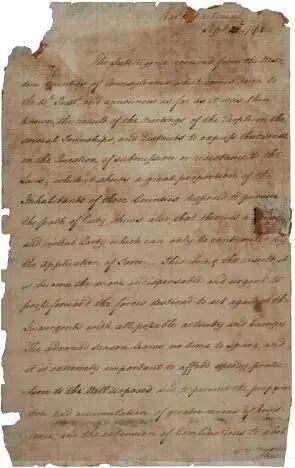 War Department
Sept 20 1794
The Intelligence received from the Wes-
tern Counties of Pennsylvania which comes down to
the 13th Inst. and announces as far as it was then
known, the result of the Meetings of the People in the
several Townships, and Districts to express their sense
on the Question of submission or resistance to the
Laws; while it shews a great proportion of the
Inhabitants of those Counties disposed to pursue
the path of Duty, shews also that there is a
and violent Party which can only be controuled by
the application of Force — This being the result, it
is become the more indispensable and urgent to
press forward the forces destined to act against the
Insurgents with all possible activity and Energy.
The advanced season leaves no time to spare, and
it is extremely important to afford speedy protec-
tion to the Well disposed, and to prevent the prepara-
tion and accumulation of greater means of Resis-
tance, and the extension of Combinations to abet
the